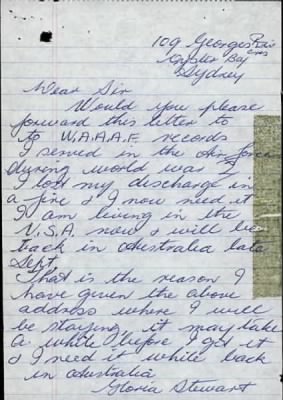 109 Georges River
Cres
Oyster Bay
Sydney
Dear Sir
Would you please
forward this letter to
to W.A.A.A.F. records
I served in the Air force
during world war 2
I lost my discharge in
a fire & I now need it
I am living in the
U.S.A. now & will be
back in Australia late
Sept.
That is the reason I
have given the above
address where I will
be staying it may take
a while before I get it
& I need it while back
in Australia
Gloria Stewart